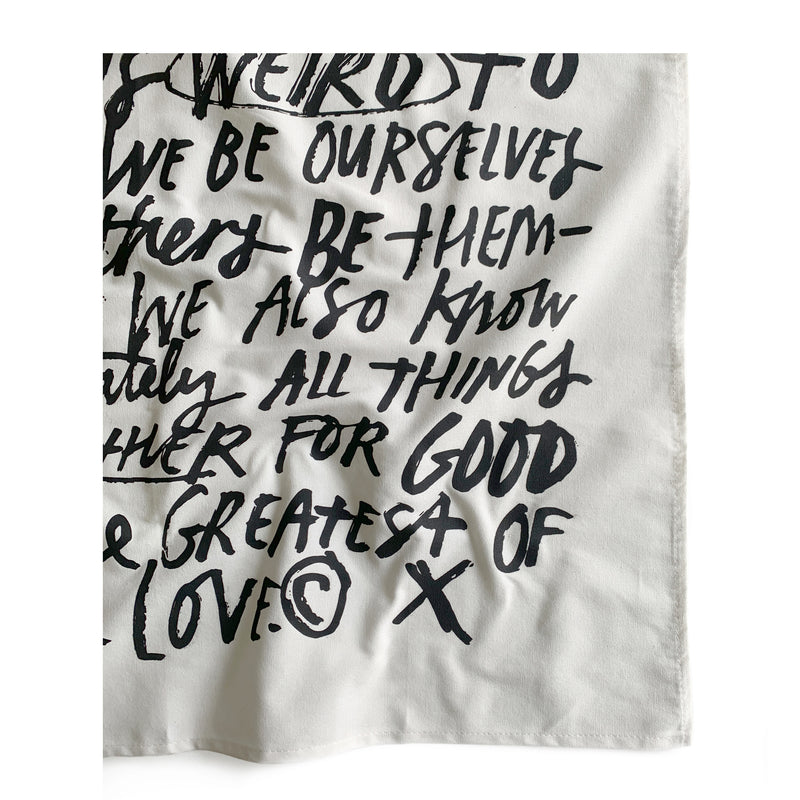 WEIRD TO
WE BE OURSELVES
thers BE tHEM-
WE ALSO know
ately ALL THINGS
tHER FOR GOOD
e GREATEST OF
LOVE.© X